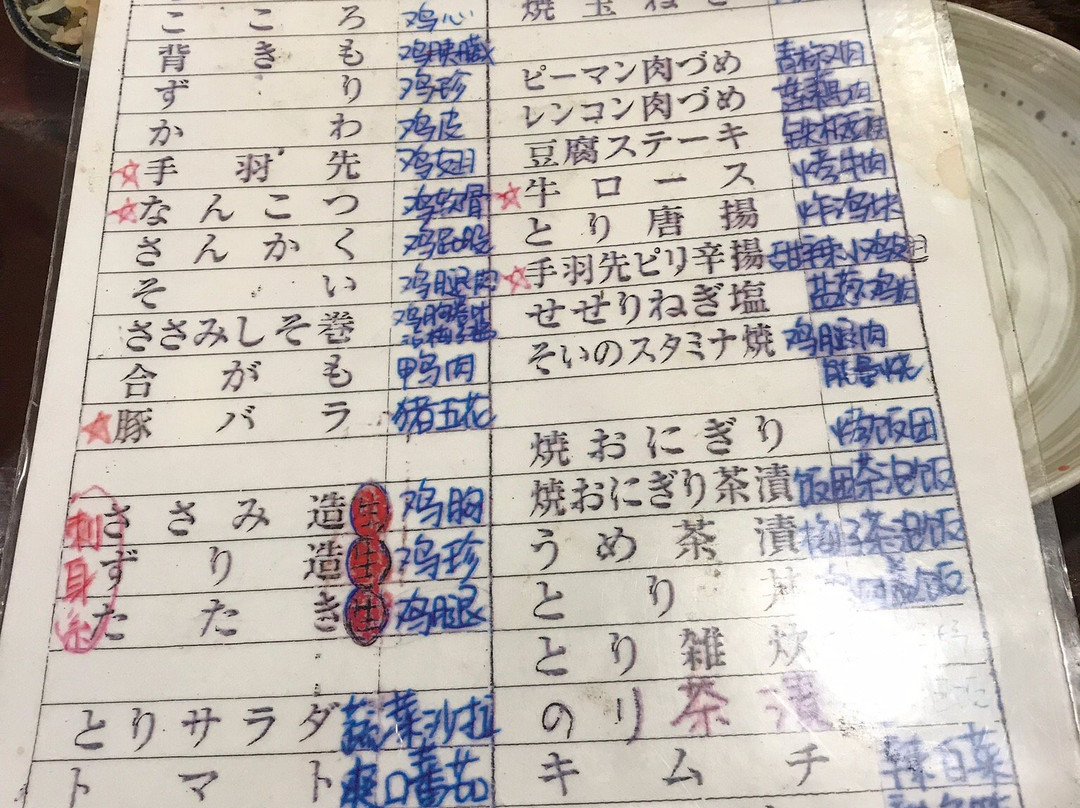 こころ 鸡心
背きも
ずり 鸡珍
かわ 鸡皮
☆手羽先 鸡翅
☆なんこつ 鸡软骨
さんかく 鸡屁股
そい 鸡腿肉
ささみしそ巻
合がも 鸭肉
☆豚バラ 猪五花
刺身
ささみ造 生 鸡胸
ずり造 生 鸡珍
たたき 生 鸡腿
とりサラダ 蔬菜沙拉
トマト 爽口番茄
焼玉ねぎ
ピーマン肉づめ 青椒肉
レンコン肉づめ
豆腐ステーキ
☆牛ロース 烤牛肉
とり唐揚 炸鸡块
☆手羽先ピリ辛揚 甜辣小鸡翅
せせりねぎ塩 盐葱鸡肉
そいのスタミナ焼 鸡腿肉
焼おにぎり 烤饭团
焼おにぎり茶漬 饭团茶泡饭
うめ茶漬 梅子茶泡饭
とり丼
とり雑炊
のり茶漬
キムチ 辣白菜